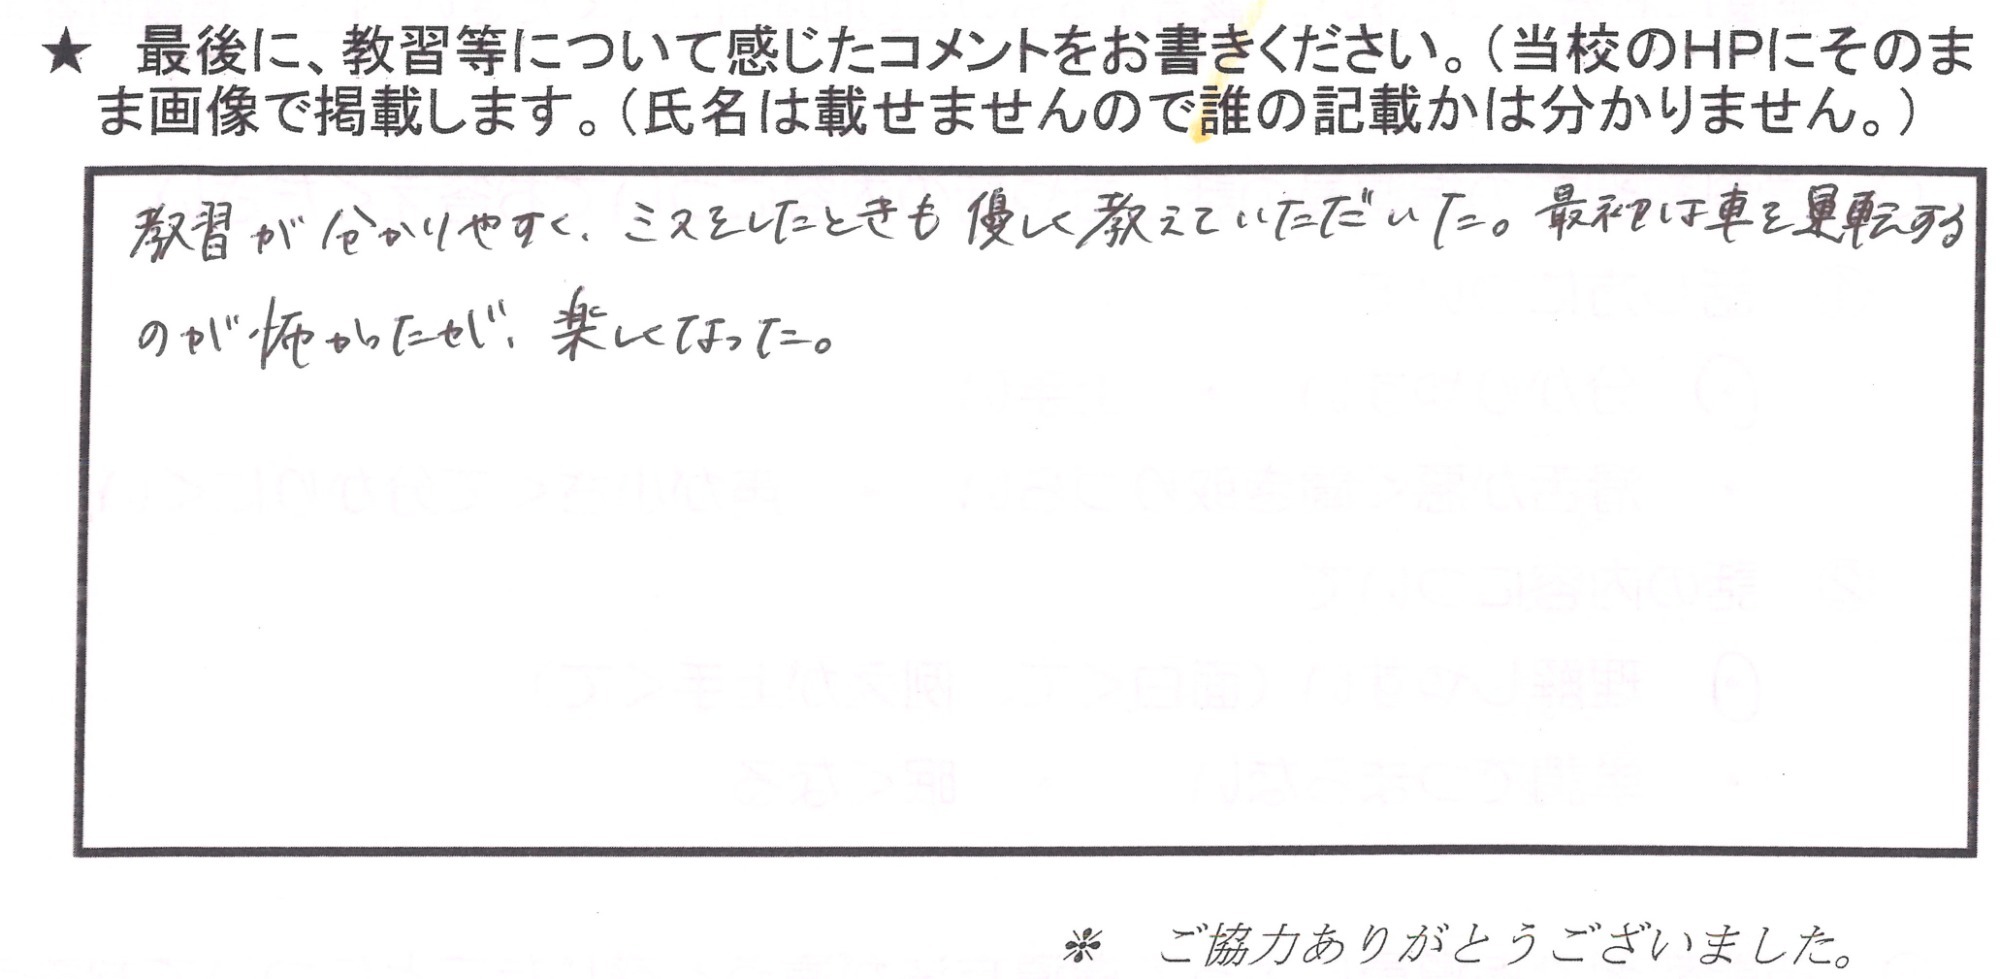 ★ 最後に、教習等について感じたコメントをお書きください。（当校のHPにそのま
ま画像で掲載します。（氏名は載せませんので誰の記載かは分かりません。）
教習が分かりやすく、ミスをしたときも優しく教えていただいた。最初は車を運転する
のが怖かったが、楽しくなった。
※ ご協力ありがとうございました。